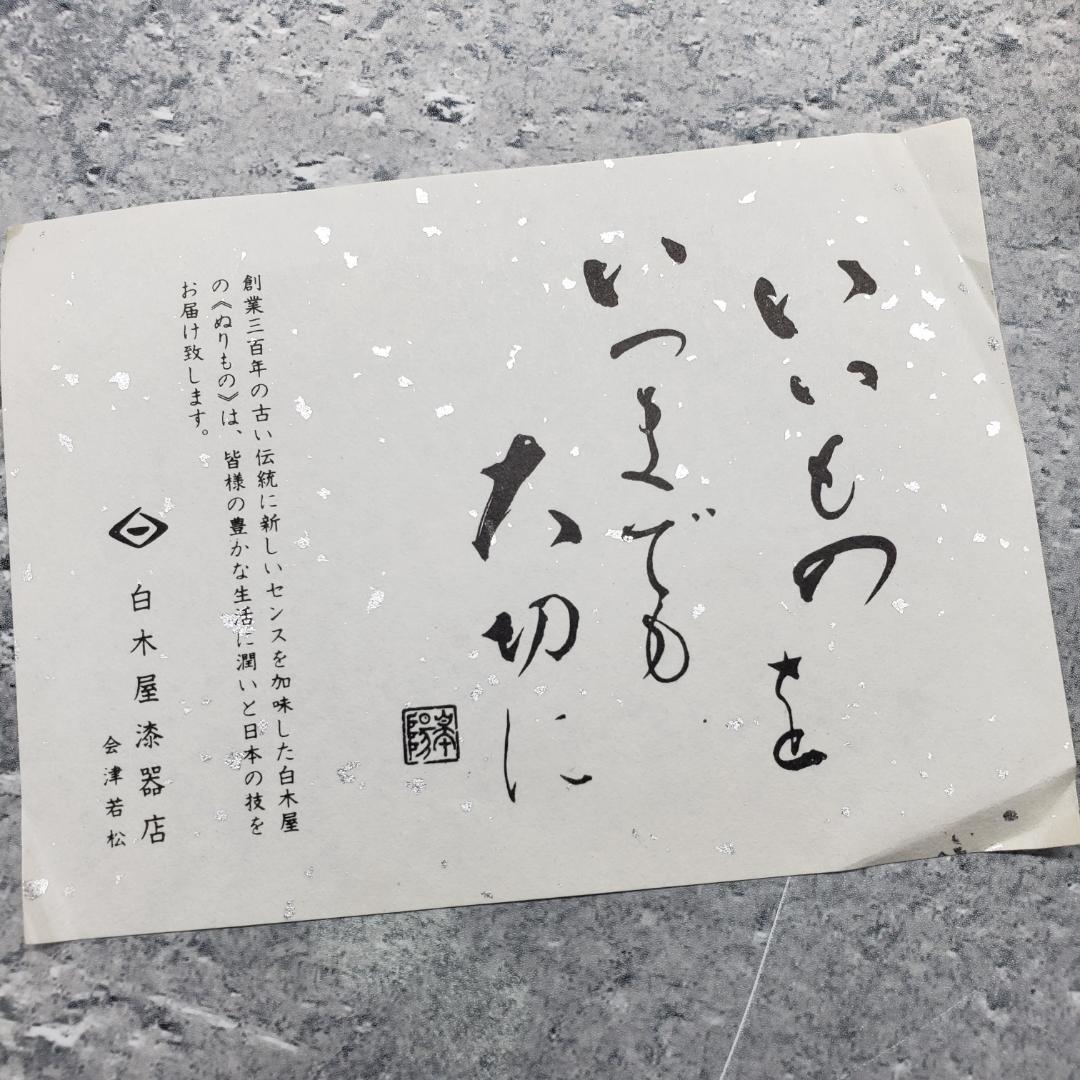 いいものを
いつまでも
大切に
創業三百年の古い伝統に新しいセンスを加味した白木屋
の《ぬりもの》は、皆様の豊かな生活に潤いと日本の技を
お届け致します。
白木屋漆器店
会津若松